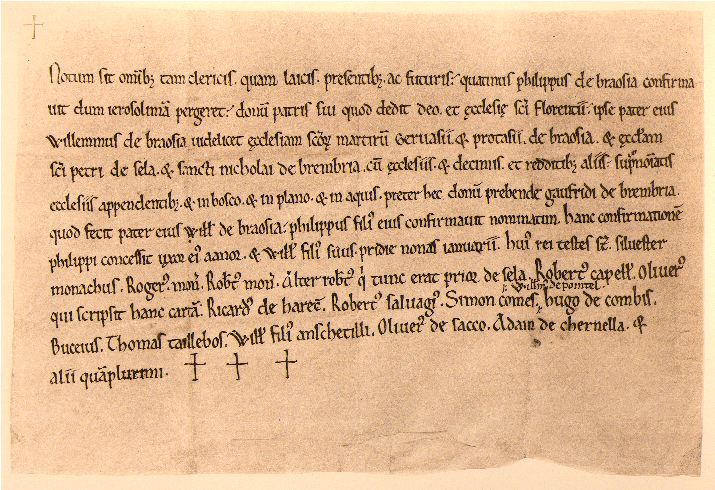 Notum sit omĩbꝫ tam clericis. quam laicis. presentibꝫ. ac futuris; quatinus philippus de braosia confirma
uit dum ierosolimã pergeret; donũ patris sui quod dedit deo. et ecclesię sc̃i florentii; ipse pater eius
Willemmus de braosia uidelicet ęcclesiam sc̃oꝝ martirũ Geruasii. & protasii. de braosia. & ęccl̃am
sc̃i petri de sela. & sancti nicholai de brembria. cũ ęcclesiis. & decimis. et redditibꝫ aliis; sup̃nõiatis
ęcclesiis appendentibꝫ. & in bosco. & in plano. & in aquis. preter hęc donũ prebende gaufridi de brembria.
quod fecit pater eius Will̃ de braosia; philippus filiꝰ eius confirmauit nominatim. hanc confirmationẽ
philippi concessit uxor eiꝰ aanor. & Will̃ filiꝰ suus. pridie nonas ianuarii. huiꝰ rei testes st̃. siluester
monachus. Rogerꝰ. moñ. Rob̃tꝰ moñ. Alter rob̃tꝰ q̇ tunc erat prior de sela. Robertꝰ capell̃. Oliuerꝰ
Willm̃ de pointel
qui scripsit hanc cartã. Ricardꝰ de harec̃. Robertꝰ saluagꝰ. Simon comes. hugo de combis.
Buceius. Thomas taillebos. Will̃ filiꝰ anschetilli. Oliuerꝰ de sacco. Adam de chernella. &
alii quãplurimi.